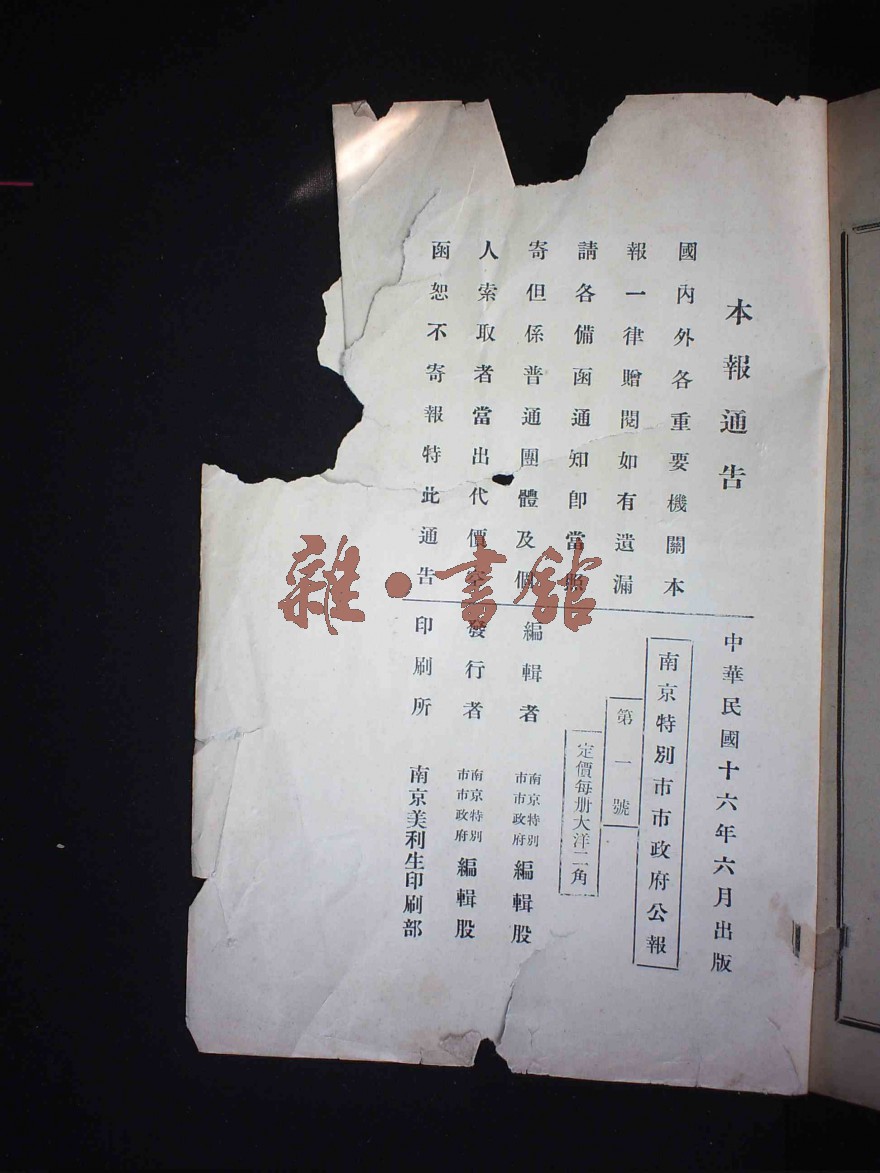 本報通告
國內外各重要機關本
報一律贈閱如有遺漏
請各備函通知卽當照
寄但係普通團體及個
人索取者當出代價空
函恕不寄報特此通告
中華民國十六年六月出版
南京特別市市政府公報
第一號
定價每册大洋二角
編輯者 南京特別市市政府編輯股
發行者 南京特別市市政府編輯股
印刷所 南京美利生印刷部
雜·書館